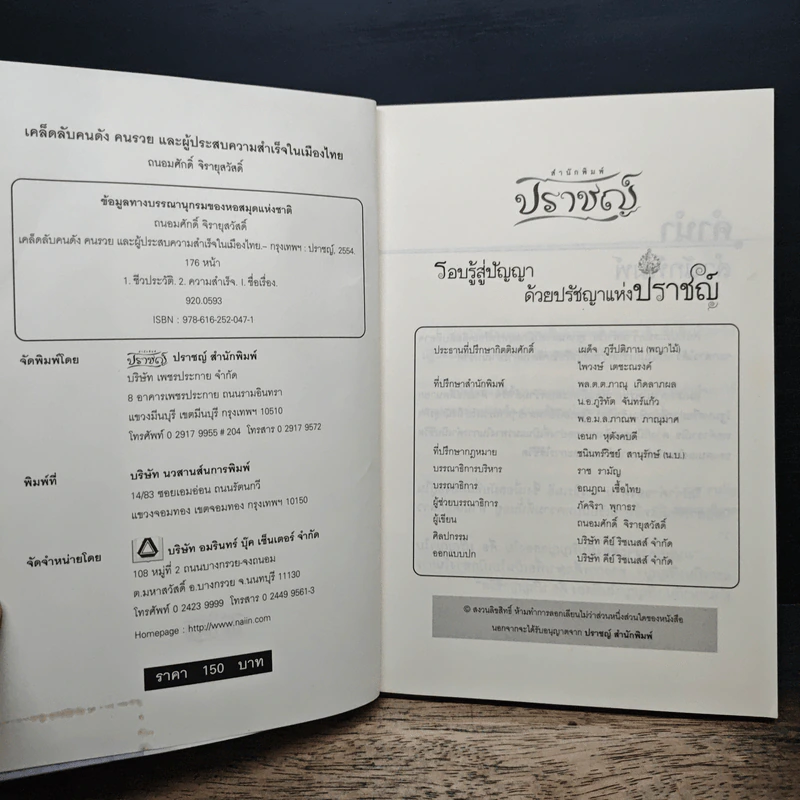 เคล็ดลับคนดัง คนรวย และผู้ประสบความสำเร็จในเมืองไทย
ถนอมศักดิ์ จิรายุสวัสดิ์
ข้อมูลทางบรรณานุกรมของหอสมุดแห่งชาติ
ถนอมศักดิ์ จิรายุสวัสดิ์
เคล็ดลับคนดัง คนรวย และผู้ประสบความสำเร็จในเมืองไทย.– กรุงเทพฯ : ปราชญ์, 2554.
176 หน้า
1. ชีวประวัติ. 2. ความสำเร็จ. I. ชื่อเรื่อง.
920.0593
ISBN : 978-616-252-047-1
จัดพิมพ์โดย
ปราชญ์ ปราชญ์ สำนักพิมพ์
บริษัท เพชรประกาย จำกัด
8 อาคารเพชรประกาย ถนนรามอินทรา
แขวงมีนบุรี เขตมีนบุรี กรุงเทพฯ 10510
โทรศัพท์ 0 2917 9955 # 204 โทรสาร 0 2917 9572
พิมพ์ที่
บริษัท นวสาส์นการพิมพ์
14/83 ซอยเอมอ่อน ถนนรัตนกวี
แขวงจอมทอง เขตจอมทอง กรุงเทพฯ 10150
จัดจำหน่ายโดย
บริษัท อมรินทร์ บุ๊ค เซ็นเตอร์ จำกัด
108 หมู่ที่ 2 ถนนบางกรวย-จงถนอม
ต.มหาสวัสดิ์ อ.บางกรวย จ.นนทบุรี 11130
โทรศัพท์ 0 2423 9999 โทรสาร 0 2449 9561-3
Homepage : http://www.naiin.com
ราคา 150 บาท
สำนักพิมพ์
ปราชญ์
รอบรู้สู่ปัญญา
ด้วยปรัชญาแห่งปราชญ์
ประธานที่ปรึกษากิตติมศักดิ์ เผด็จ ภูรีปติภาน (พญาไม้)
ไพวงษ์ เตชะณรงค์
ที่ปรึกษาสำนักพิมพ์ พล.ต.ต.ภาณุ เกิดลาภผล
น.อ.ภูริทัต จันทร์แก้ว
พ.อ.ม.ล.ภาณพ ภาณุมาศ
เอนก หุตังคบดี
ที่ปรึกษากฎหมาย ชนินทร์วิชย์ สานุรักษ์ (น.บ.)
บรรณาธิการบริหาร ราช รามัญ
บรรณาธิการ อณฏณ เชื้อไทย
ผู้ช่วยบรรณาธิการ ภัคจิรา พุกาธร
ผู้เขียน ถนอมศักดิ์ จิรายุสวัสดิ์
ศิลปกรรม บริษัท คีย์ ริชเนสส์ จำกัด
ออกแบบปก บริษัท คีย์ ริชเนสส์ จำกัด
© สงวนลิขสิทธิ์ ห้ามทำการลอกเลียนไม่ว่าส่วนหนึ่งส่วนใดของหนังสือ
นอกจากจะได้รับอนุญาตจาก ปราชญ์ สำนักพิมพ์
คำนำ